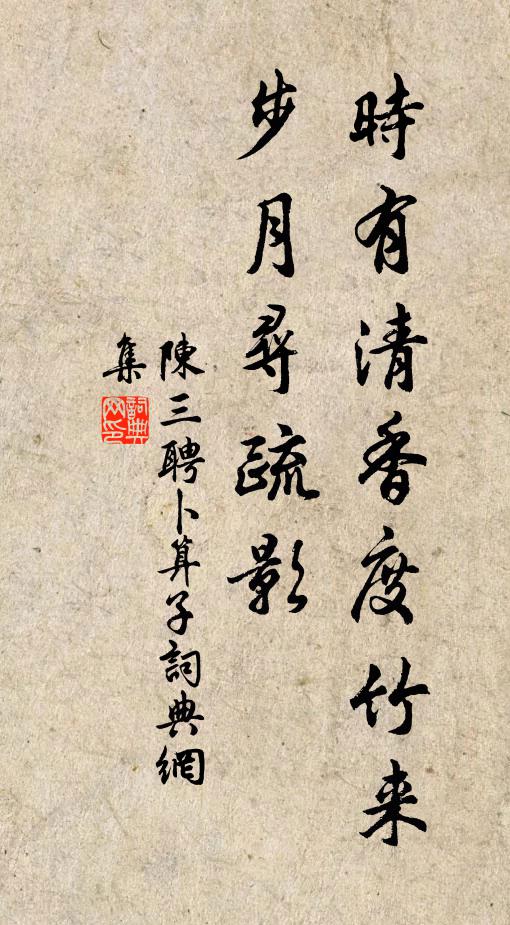 時有清香度竹来
步月尋疏影
陳三聘卜算子詞典網
集
詞典
网印